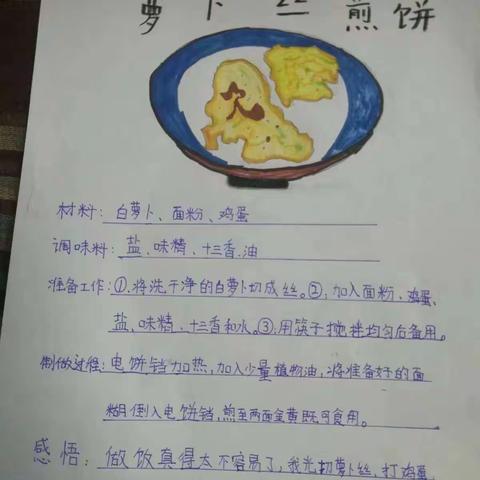 萝卜丝煎饼
材料：白萝卜、面粉、鸡蛋
调味料：盐、味精、十三香、油
准备工作：①.将洗干净的白萝卜切成丝。②，加入面粉、鸡蛋、
盐、味精、十三香和水。③，用筷子搅拌均匀后备用。
制做过程：电饼铛加热，加入少量植物油，将准备好的面
糊倒入电饼铛，煎至两面金黄既可食用。
感悟：做饭真得太不容易了，我光切萝卜丝，打鸡蛋，